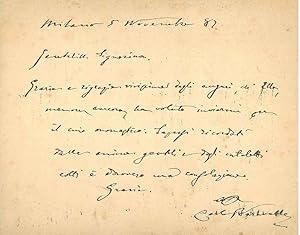 Milano 5 Novembre 87
Gentiliss. Signorina.
Grazie e ringrazio vivissime degli auguri che Ella,
memore ancora, ha voluto inviarmi per
il mio onomastico. Sapersi ricordati
dalle anime gentili e dagli intelletti
colti è davvero una consolazione.
Grazie.